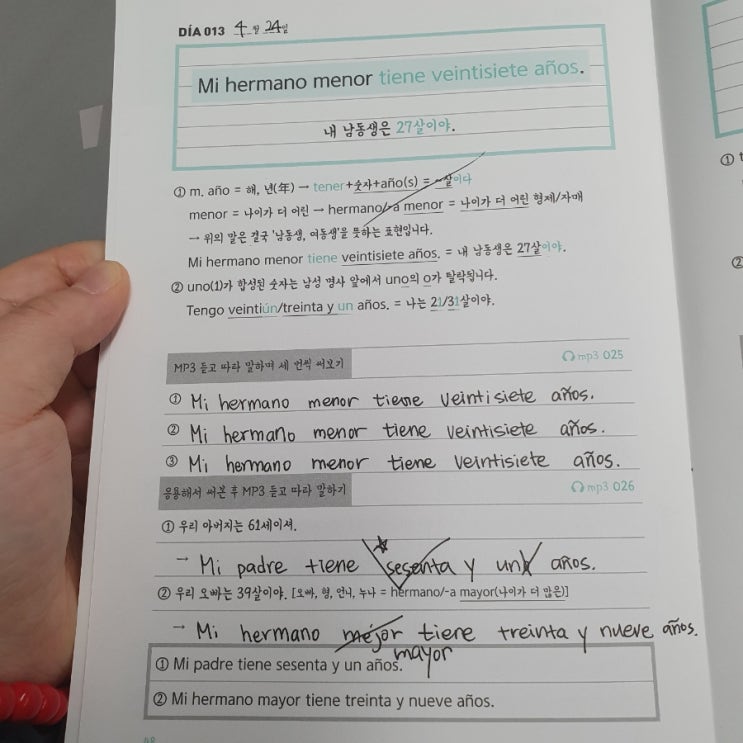 DÍA 013 4월 24일
Mi hermano menor tiene veintisiete años.
내 남동생은 27살이야.
① m. año = 해, 년(年) → tener+숫자+año(s) = ~살이다
menor = 나이가 더 어린 → hermano/-a menor = 나이가 더 어린 형제/자매
→ 위의 말은 결국 '남동생, 여동생'을 뜻하는 표현입니다.
Mi hermano menor tiene veintisiete años. = 내 남동생은 27살이야.
② uno(1)가 합성된 숫자는 남성 명사 앞에서 uno의 o가 탈락됩니다.
Tengo veintiún/treinta y un años. = 나는 21/31살이야.
MP3 듣고 따라 말하며 세 번씩 써보기
mp3 025
① Mi hermano menor tiene veintisiete años.
② Mi hermano menor tiene veintisiete años.
③ Mi hermano menor tiene veintisiete años.
응용해서 써본 후 MP3 듣고 따라 말하기
mp3 026
① 우리 아버지는 61세이셔.
→ Mi padre tiene sesenta y un años.
② 우리 오빠는 39살이야. [오빠, 형, 언니, 누나 = hermano/-a mayor(나이가 더 많은)]
→ Mi hermano mejor tiene treinta y nueve años.
mayor
① Mi padre tiene sesenta y un años.
② Mi hermano mayor tiene treinta y nueve años.
48
①
②